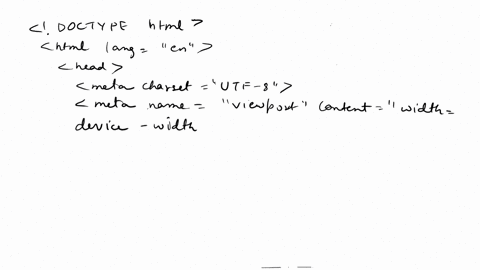 <!DOCTYPE html>
<html lang="en">
<head>
<meta charset="UTF-8">
<meta name="viewport" content="width=
device-width